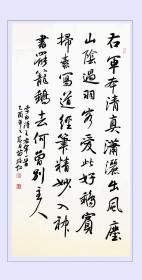 右軍本清真瀟灑出風塵
山陰過羽客愛此好鵝賓
掃素寫道經筆精妙入神
書罷籠鵝去何曾別主人
李白詩王右軍